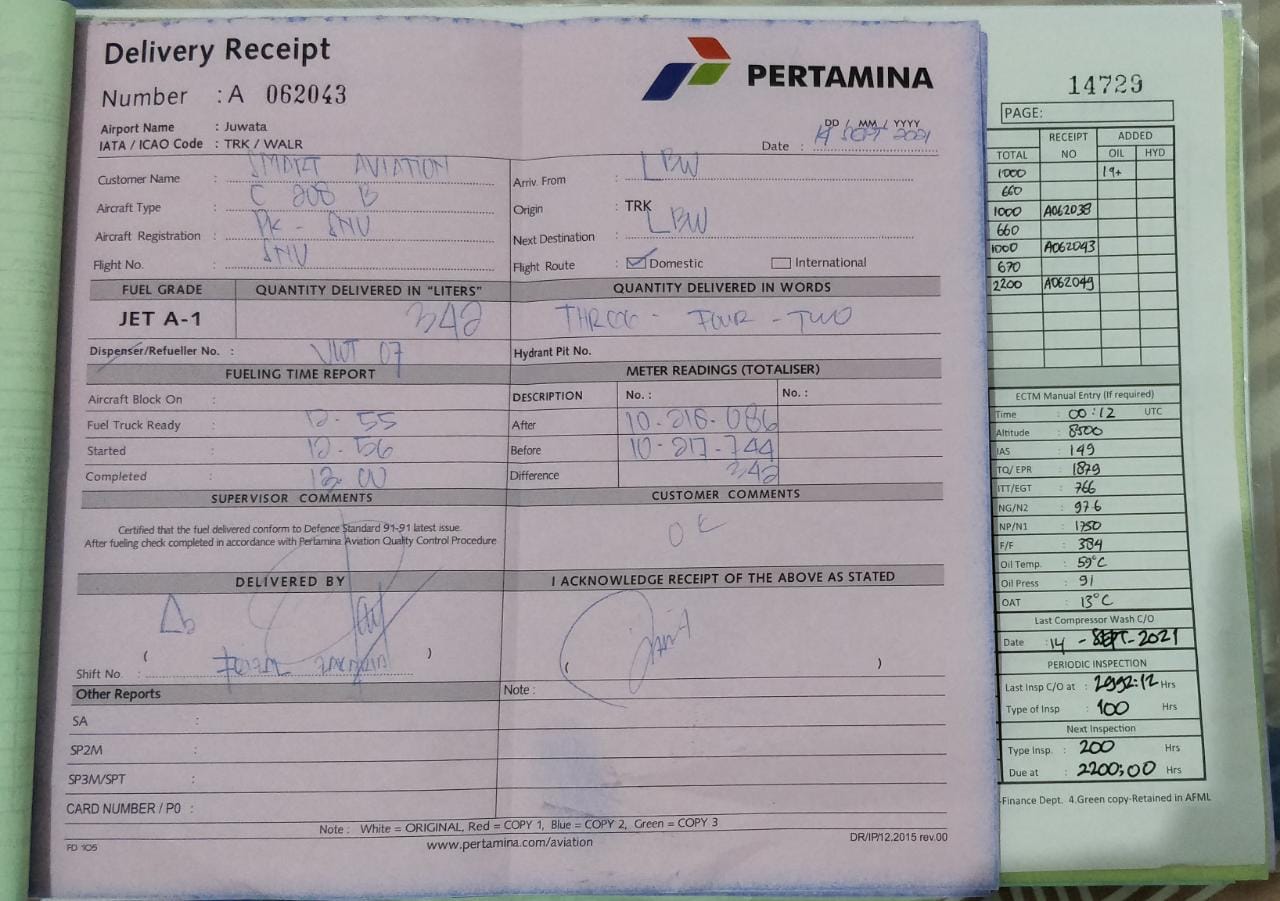 Delivery Receipt
Number : A 062043
PERTAMINA
Airport Name : Juwata
IATA / ICAO Code : TRK / WALR
DD / MM / YYYY
Date : 14 SEPT 2021
Customer Name : SMART AVIATION
Arriv. From : LBW
Aircraft Type : C 208 B
Origin : TRK
Aircraft Registration : PK - SNU
Next Destination : LBW
Flight No. : SNU
Flight Route : Domestic International
FUEL GRADE QUANTITY DELIVERED IN "LITERS" QUANTITY DELIVERED IN WORDS
JET A-1 342 THREE - FOUR - TWO
Dispenser/Refueller No. : 07
Hydrant Pit No.
FUELING TIME REPORT METER READINGS (TOTALISER)
Aircraft Block On : DESCRIPTION No. : No. :
Fuel Truck Ready : 12-55 After
Started : 12-56 Before 10-217-744
Completed : Difference 342
SUPERVISOR COMMENTS CUSTOMER COMMENTS
Certified that the fuel delivered conform to Defence Standard 91-91 latest issue.
After fueling check completed in accordance with Pertamina Aviation Quality Control Procedure
OK
DELIVERED BY I ACKNOWLEDGE RECEIPT OF THE ABOVE AS STATED
( )
( )
Shift No. :
Other Reports Note :
SA :
SP2M :
SP3M/SPT :
CARD NUMBER / P0 :
Note : White = ORIGINAL, Red = COPY 1, Blue = COPY 2, Green = COPY 3
FD 105 www.pertamina.com/aviation DR/IP/12.2015 rev.00
14729
PAGE:
TOTAL RECEIPT NO ADDED
OIL HYD
1000
660
1000 A062038
660
1000 A062043
670
2200 A062049
ECTM Manual Entry (If required)
Time : 00:12 UTC
Altitude : 8500
IAS : 149
TQ/ EPR : 1879
ITT/EGT : 766
NG/N2 : 97 6
NP/N1 : 1750
F/F : 384
Oil Temp. : 59°C
Oil Press : 91
OAT : 13°C
Last Compressor Wash C/O
Date : 14 - SEPT - 2021
PERIODIC INSPECTION
Last Insp C/O at : Hrs
Type of Insp : 100 Hrs
Next Inspection
Type Insp. : 200 Hrs
Due at : 2200:00 Hrs
-Finance Dept. 4.Green copy-Retained in AFML